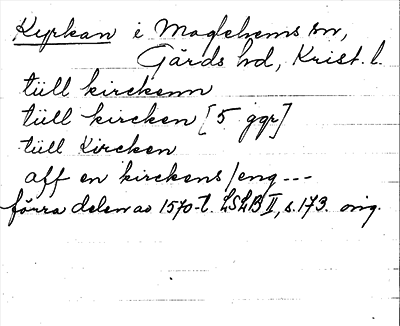 Kyrkan i Maglehems sn,
Gärds hd, Krist. l.
tüll kirckenn
tüll kircken [5 ggr]
tüll Kircken
aff en kirckens/eng ---
förra delen av 1570-t. LSLB II, s. 173. orig.